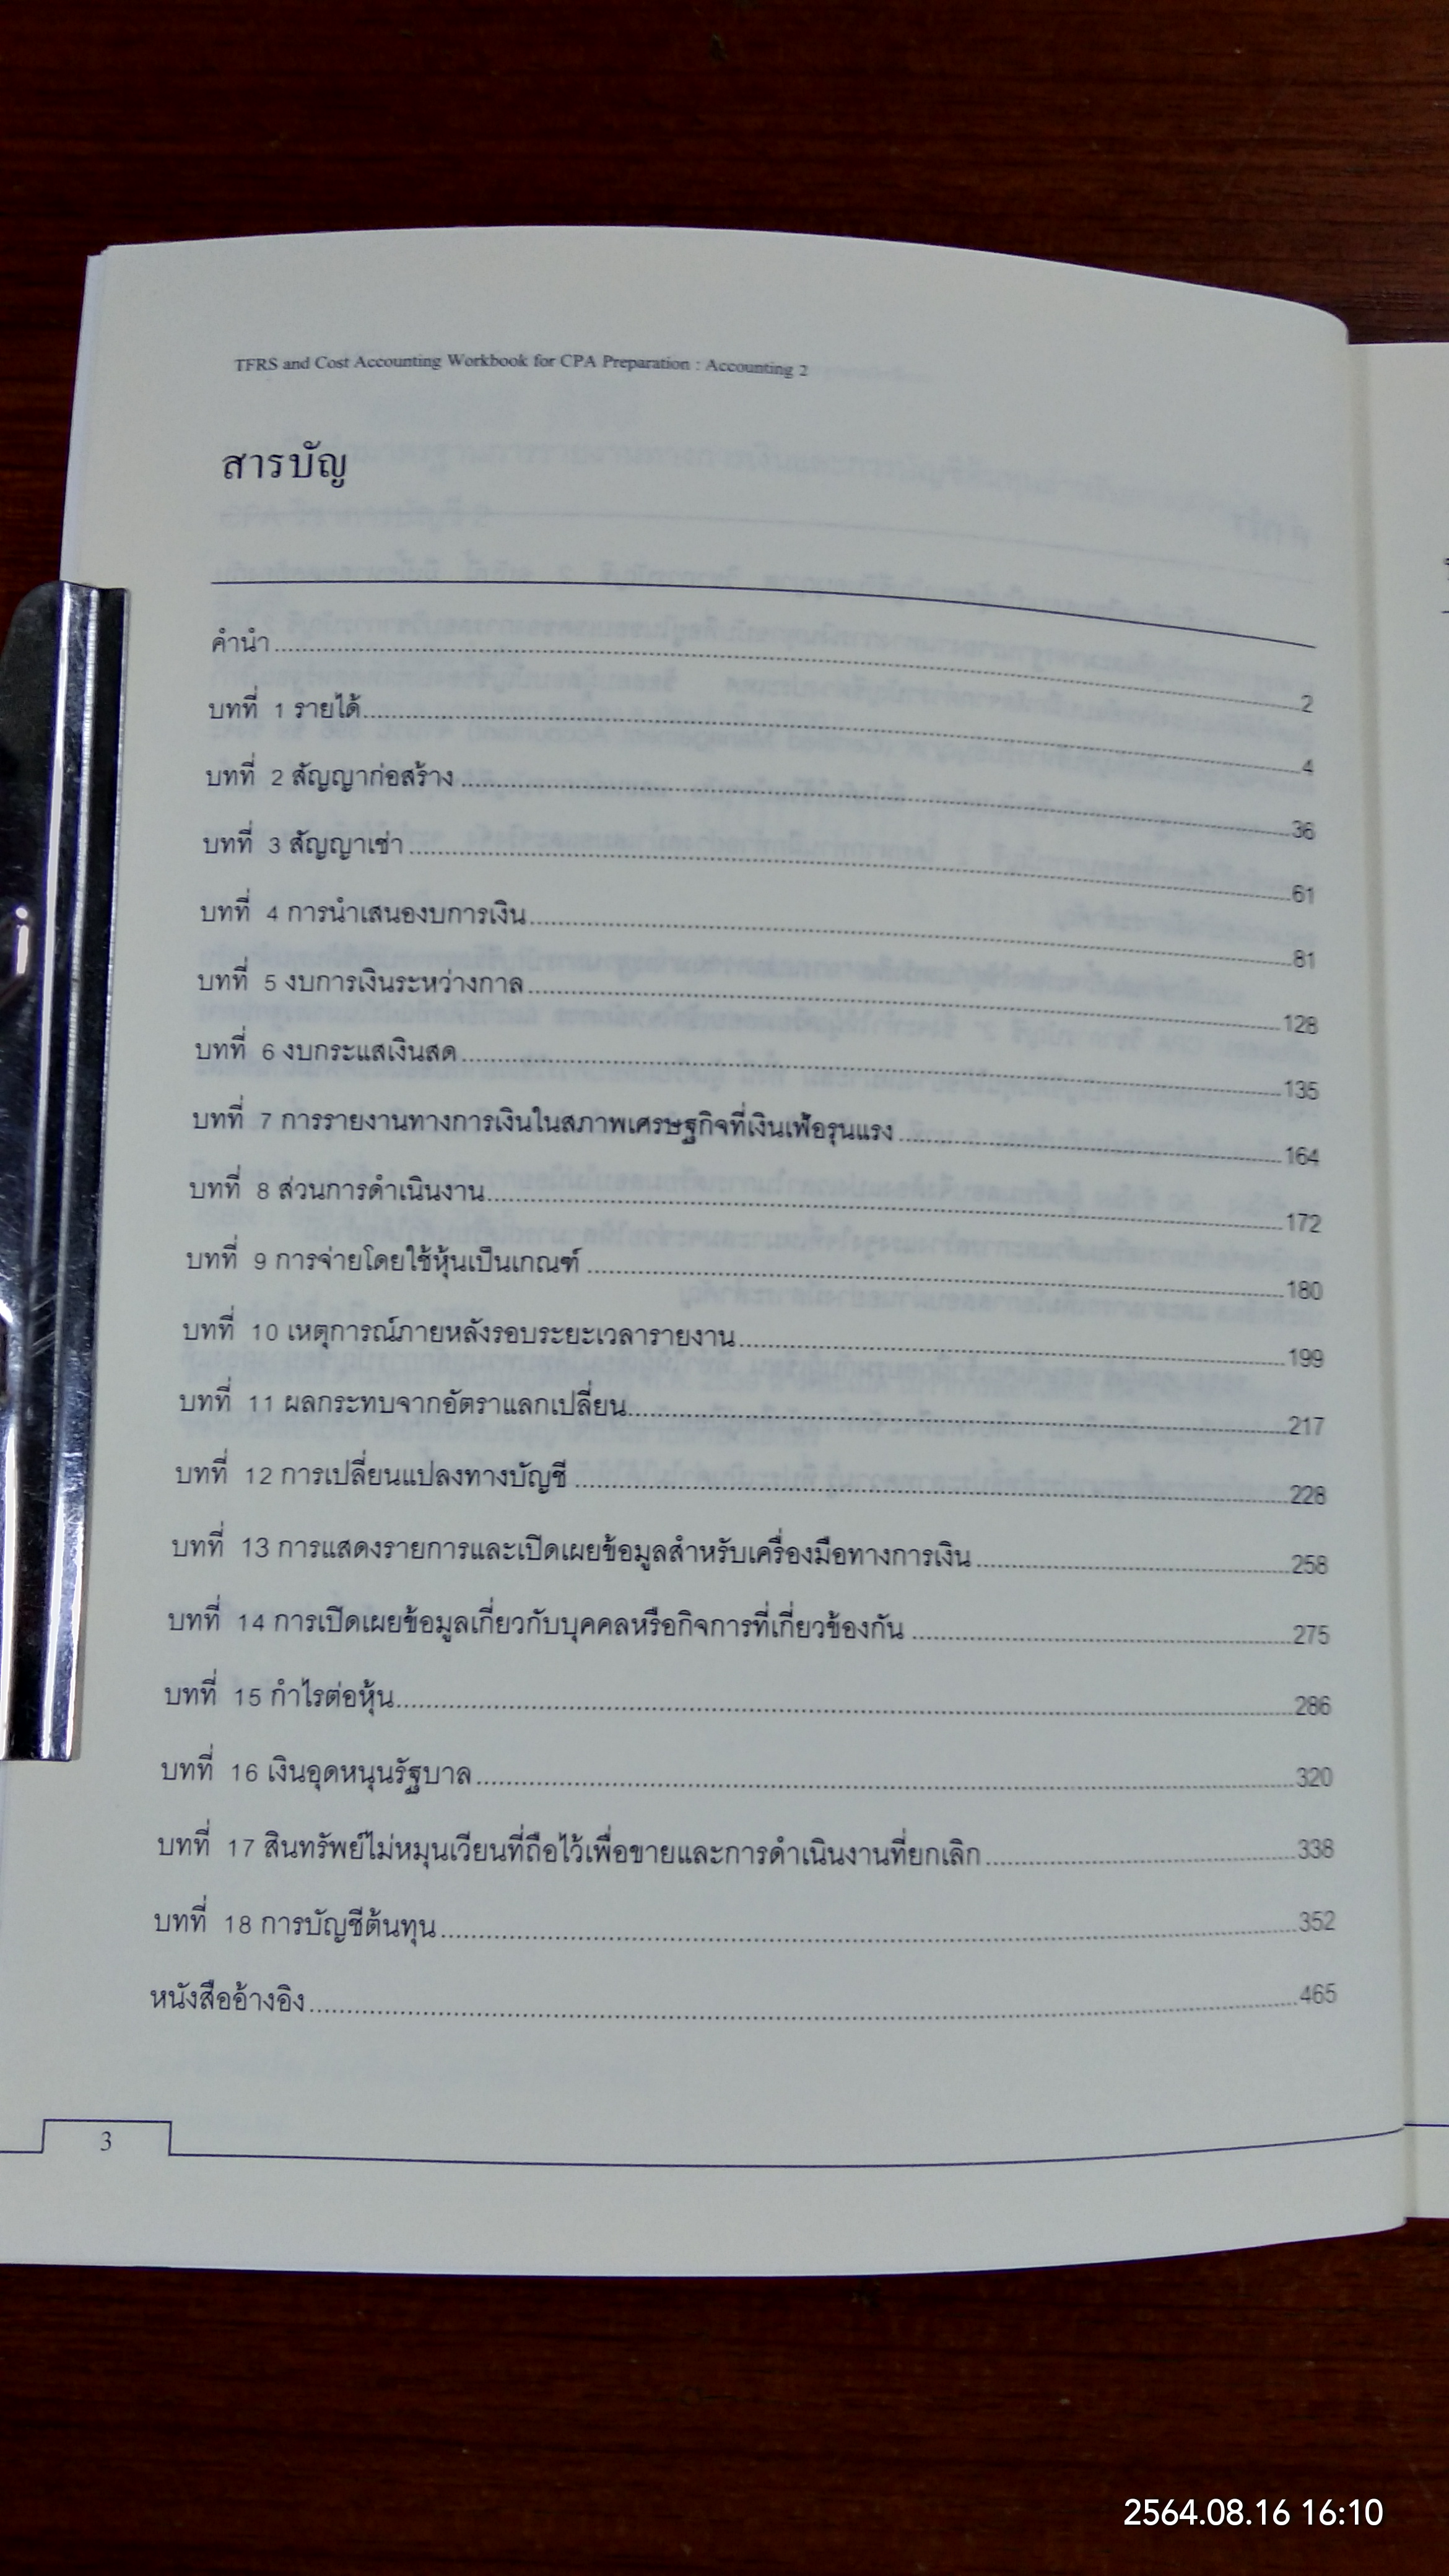 TFRS and Cost Accounting Workbook for CPA Preparation : Accounting 2
สารบัญ
คำนำ....................2
บทที่ 1 รายได้....................4
บทที่ 2 สัญญาก่อสร้าง....................36
บทที่ 3 สัญญาเช่า....................61
บทที่ 4 การนำเสนองบการเงิน....................81
บทที่ 5 งบการเงินระหว่างกาล....................128
บทที่ 6 งบกระแสเงินสด....................135
บทที่ 7 การรายงานทางการเงินในสภาพเศรษฐกิจที่เงินเฟ้อรุนแรง....................164
บทที่ 8 ส่วนการดำเนินงาน....................172
บทที่ 9 การจ่ายโดยใช้หุ้นเป็นเกณฑ์....................180
บทที่ 10 เหตุการณ์ภายหลังรอบระยะเวลารายงาน....................199
บทที่ 11 ผลกระทบจากอัตราแลกเปลี่ยน....................217
บทที่ 12 การเปลี่ยนแปลงทางบัญชี....................228
บทที่ 13 การแสดงรายการและเปิดเผยข้อมูลสำหรับเครื่องมือทางการเงิน....................258
บทที่ 14 การเปิดเผยข้อมูลเกี่ยวกับบุคคลหรือกิจการที่เกี่ยวข้องกัน....................275
บทที่ 15 กำไรต่อหุ้น....................286
บทที่ 16 เงินอุดหนุนรัฐบาล....................320
บทที่ 17 สินทรัพย์ไม่หมุนเวียนที่ถือไว้เพื่อขายและการดำเนินงานที่ยกเลิก....................338
บทที่ 18 การบัญชีต้นทุน....................352
หนังสืออ้างอิง....................465
3
2564.08.16 16:10